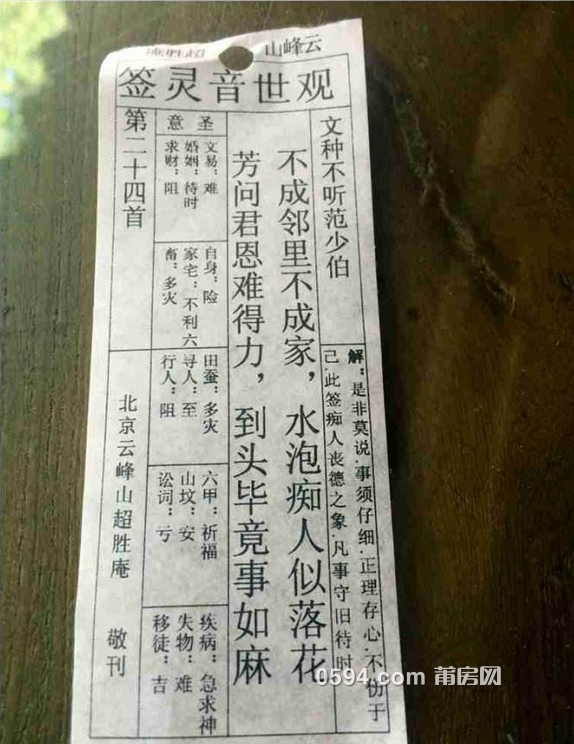 云峰山
超胜庵
观世音灵签
文种不听范少伯
解：是非莫说.事须仔细.正理存心.不伤于
己.此签痴人丧德之象.凡事守旧待时
不成邻里不成家，水泡痴人似落花
芳问君恩难得力，到头毕竟事如麻
圣意
文易：难
婚姻：待时
求财：阻
自身：险
家宅：不利六
畜：多灾
田蚕：多灾
寻人：至
行人：阻
六甲：祈福
山坟：安
讼词：亏
疾病：急求神
失物：难
移徒：吉
第二十四首
北京云峰山超胜庵 敬刊
0594.com 莆房网